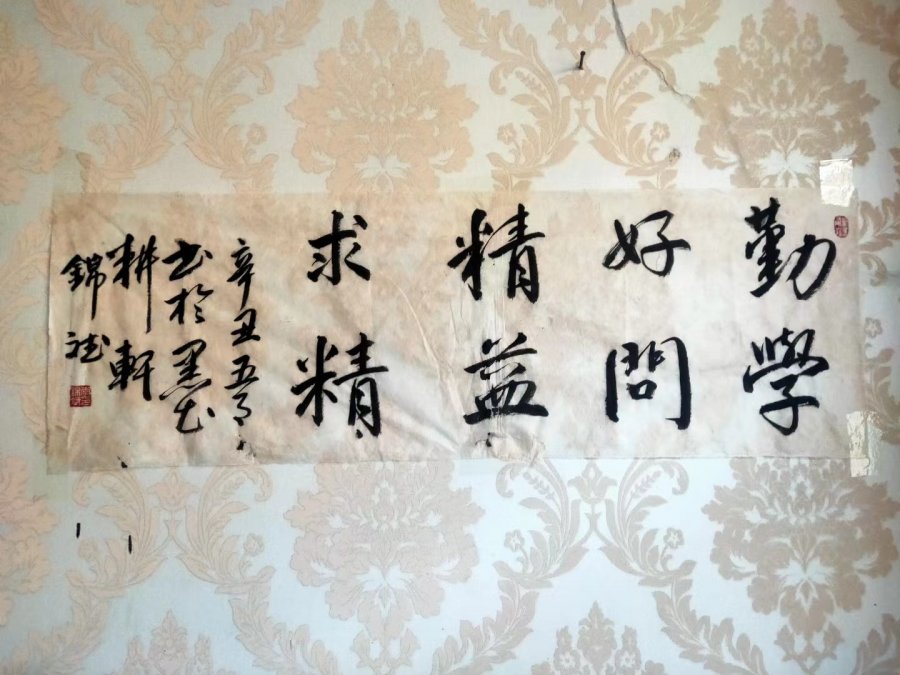 勤學
好問
精益
求精
辛丑五月
书於墨
耕軒
錦斌